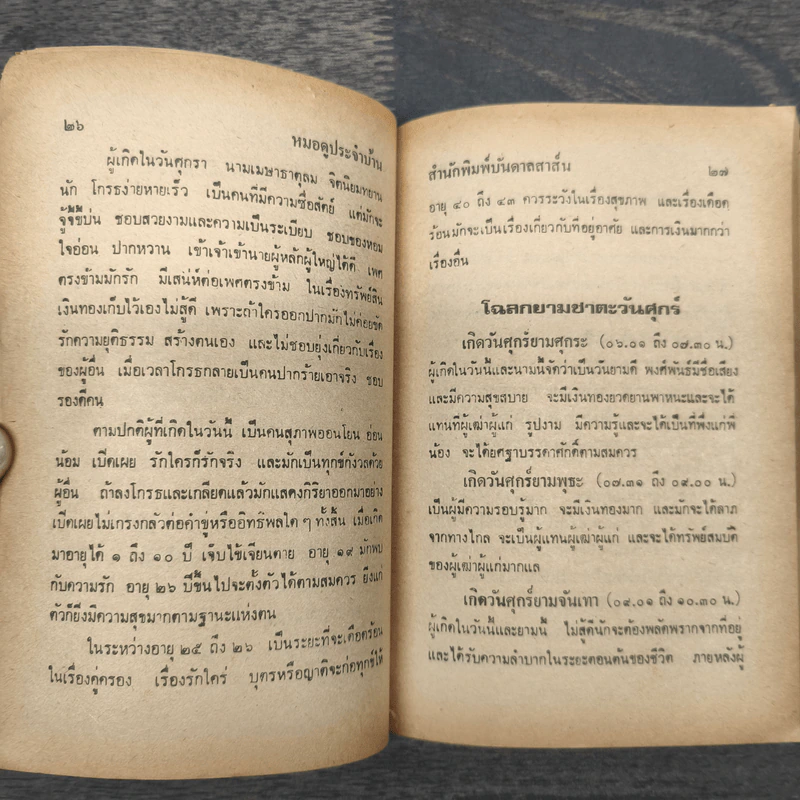 ๒๖
หมอดูประจำบ้าน
ผู้เกิดในวันศุกรา นามเมษาธาตุลม จิตนิยมทยาน
นัก โกรธง่ายหายเร็ว เป็นคนที่มีความซื่อสัตย์ แต่มักจะ
จู้จี้ขี้บ่น ชอบสวยงามและความเป็นระเบียบ ชอบของหอม
ใจอ่อน ปากหวาน เข้าเจ้าเข้านายผู้หลักผู้ใหญ่ได้ดี เพศ
ตรงข้ามมักรัก มีเสน่ห์ต่อเพศตรงข้าม ในเรื่องทรัพย์สิน
เงินทองเก็บไว้เองไม่สู้ดี เพราะถ้าใครออกปากมักไม่ค่อยขัด
รักความยุติธรรม สร้างตนเอง และไม่ชอบยุ่งเกี่ยวกับเรื่อง
ของผู้อื่น เมื่อเวลาโกรธกลายเป็นคนปากร้ายเอาจริง ชอบ
รองตีคน
ตามปกติผู้ที่เกิดในวันนี้ เป็นคนสุภาพออนโยน อ่อน
น้อม เปิดเผย รักใครก็รักจริง และมักเป็นทุกข์กังวลด้วย
ผู้อื่น ถ้าลงโกรธและเกลียดแล้วมักแสดงกิริยาออกมาอย่าง
เปิดเผยไม่เกรงกลัวต่อคำขู่หรืออิทธิพลใด ๆ ทั้งสิ้น เมื่อเกิด
มาอายุได้ ๑ ถึง ๑๐ ปี เจ็บไข้เจียนตาย อายุ ๑๙ มักพบ
กับความรัก อายุ ๒๖ ปีขึ้นไปจะตั้งตัวได้ตามสมควร ยิ่งแก่
ตัวก็ยิ่งมีความสุขมากตามฐานะแห่งตน
ในระหว่างอายุ ๒๕ ถึง ๒๖ เป็นระยะที่จะเดือดร้อน
ในเรื่องคู่ครอง เรื่องรักใคร่ บุตรหรือญาติจะก่อทุกข์ให้
สำนักพิมพ์บันดาลสาส์น
๒๗
อายุ ๔๐ ถึง ๔๓ ควรระวังในเรื่องสุขภาพ และเรื่องเดือด
ร้อนมักจะเป็นเรื่องเกี่ยวกับที่อยู่อาศัย และการเงินมากกว่า
เรื่องอื่น
โฉลกยามชาตะวันศุกร์
เกิดวันศุกร์ยามศุกระ (๐๖.๐๑ ถึง ๐๗.๓๐ น.)
ผู้เกิดในวันนี้และนามนี้จัดว่าเป็นวันยามดี พงศ์พันธ์มีชื่อเสียง
และมีความสุขสบาย จะมีเงินทองยวดยานพาหนะและจะได้
แทนที่ผู้เฒ่าผู้แก่ รูปงาม มีความรู้และจะได้เป็นที่พึ่งแก่พี่
น้อง จะได้ยศฐาบรรดาศักดิ์ตามสมควร
เกิดวันศุกร์ยามพุธะ (๐๗.๓๑ ถึง ๐๙.๐๐ น.)
เป็นผู้มีความรอบรู้มาก จะมีเงินทองมาก และมักจะได้ลาภ
จากทางไกล จะเป็นผู้แทนผู้เฒ่าผู้แก่ และจะได้ทรัพย์สมบัติ
ของผู้เฒ่าผู้แก่มากแล
เกิดวันศุกร์ยามจันเทา (๐๙.๐๑ ถึง ๑๐.๓๐ น.)
ผู้เกิดในวันนี้และยามนี้ ไม่สู้ดีนักจะต้องพลัดพรากจากที่อยู่
และได้รับความลำบากในระยะตอนต้นของชีวิต ภายหลังผู้